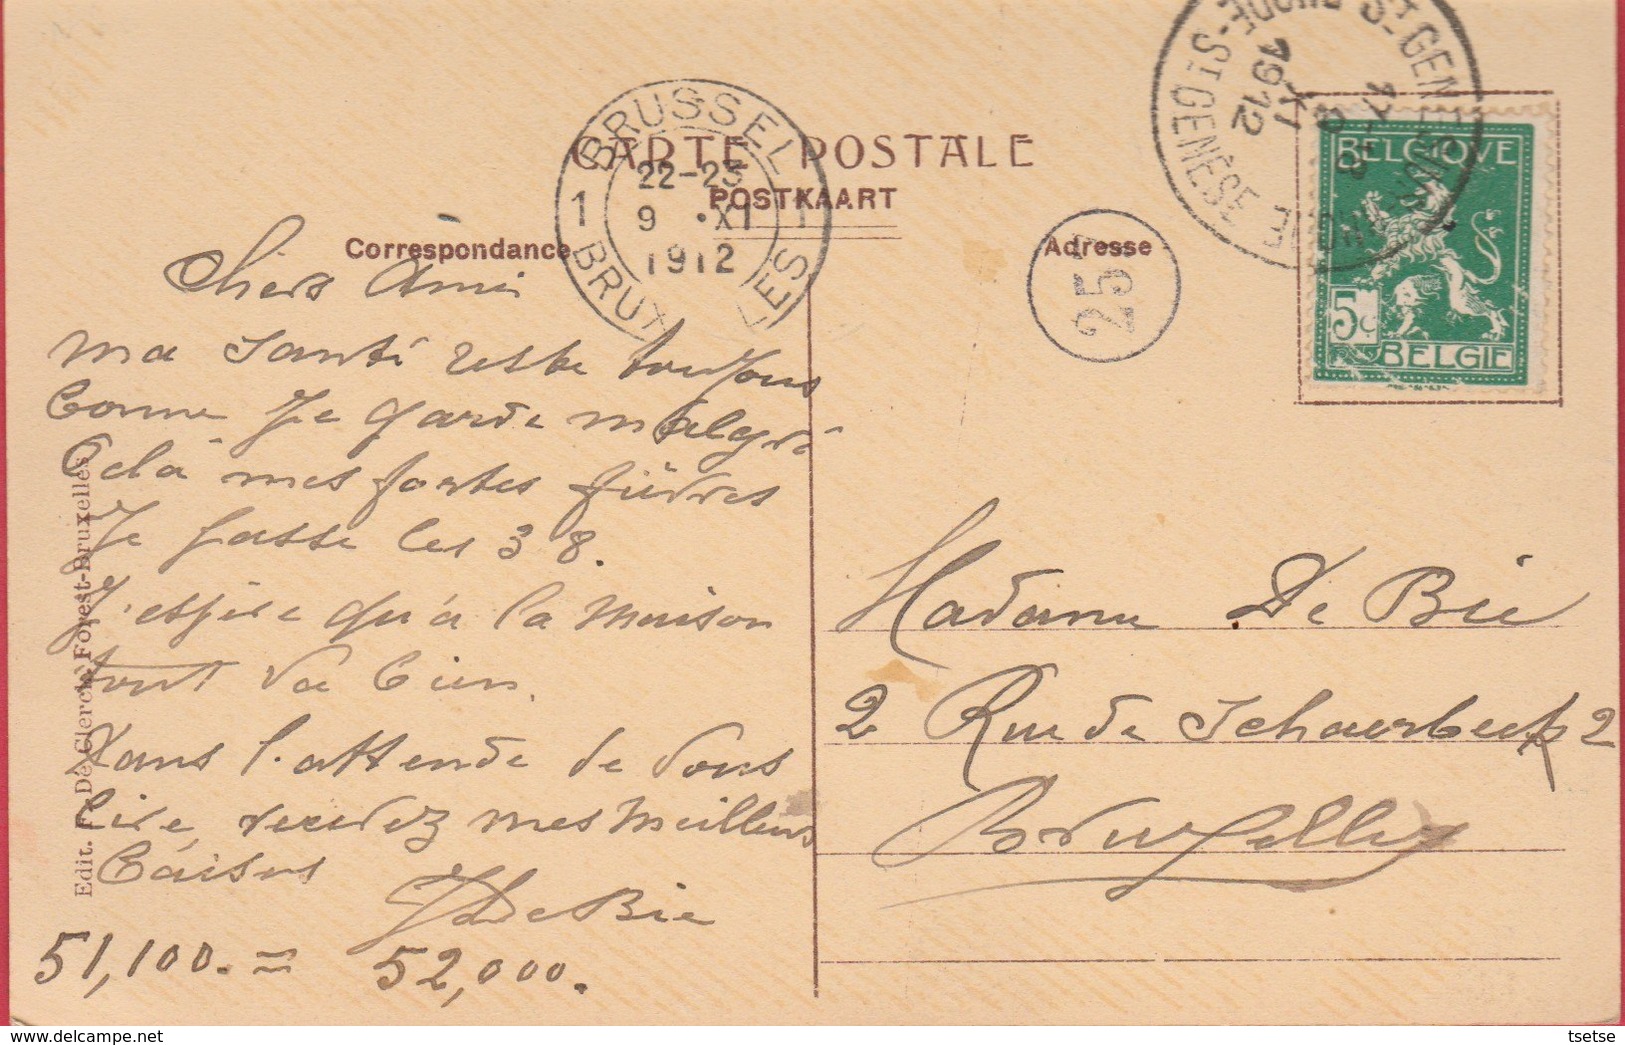 CARTE POSTALE
POSTKAART
Correspondance
Adresse
BRUSSEL
1 1
22-23
9 •XI
1912
BRUX LES
RHODE-ST-GENÈSE
9 XI
1912
25
BELGIQUE
5c
BELGIE
Chers Amis
ma santé reste toujours
bonne je garde malgré
cela mes fortes fièvres
Je passe les 38.
J'espère qu'à la maison
tout va bien.
Dans l'attende de vous
lire, recevez mes meilleurs
baisers
De Bie
51,100. = 52,000.
Madame De Bie
2 Rue de Schaerbeck 2
Bruxelles
Edit. F. De Clercq, Forest-Bruxelles
tsetse